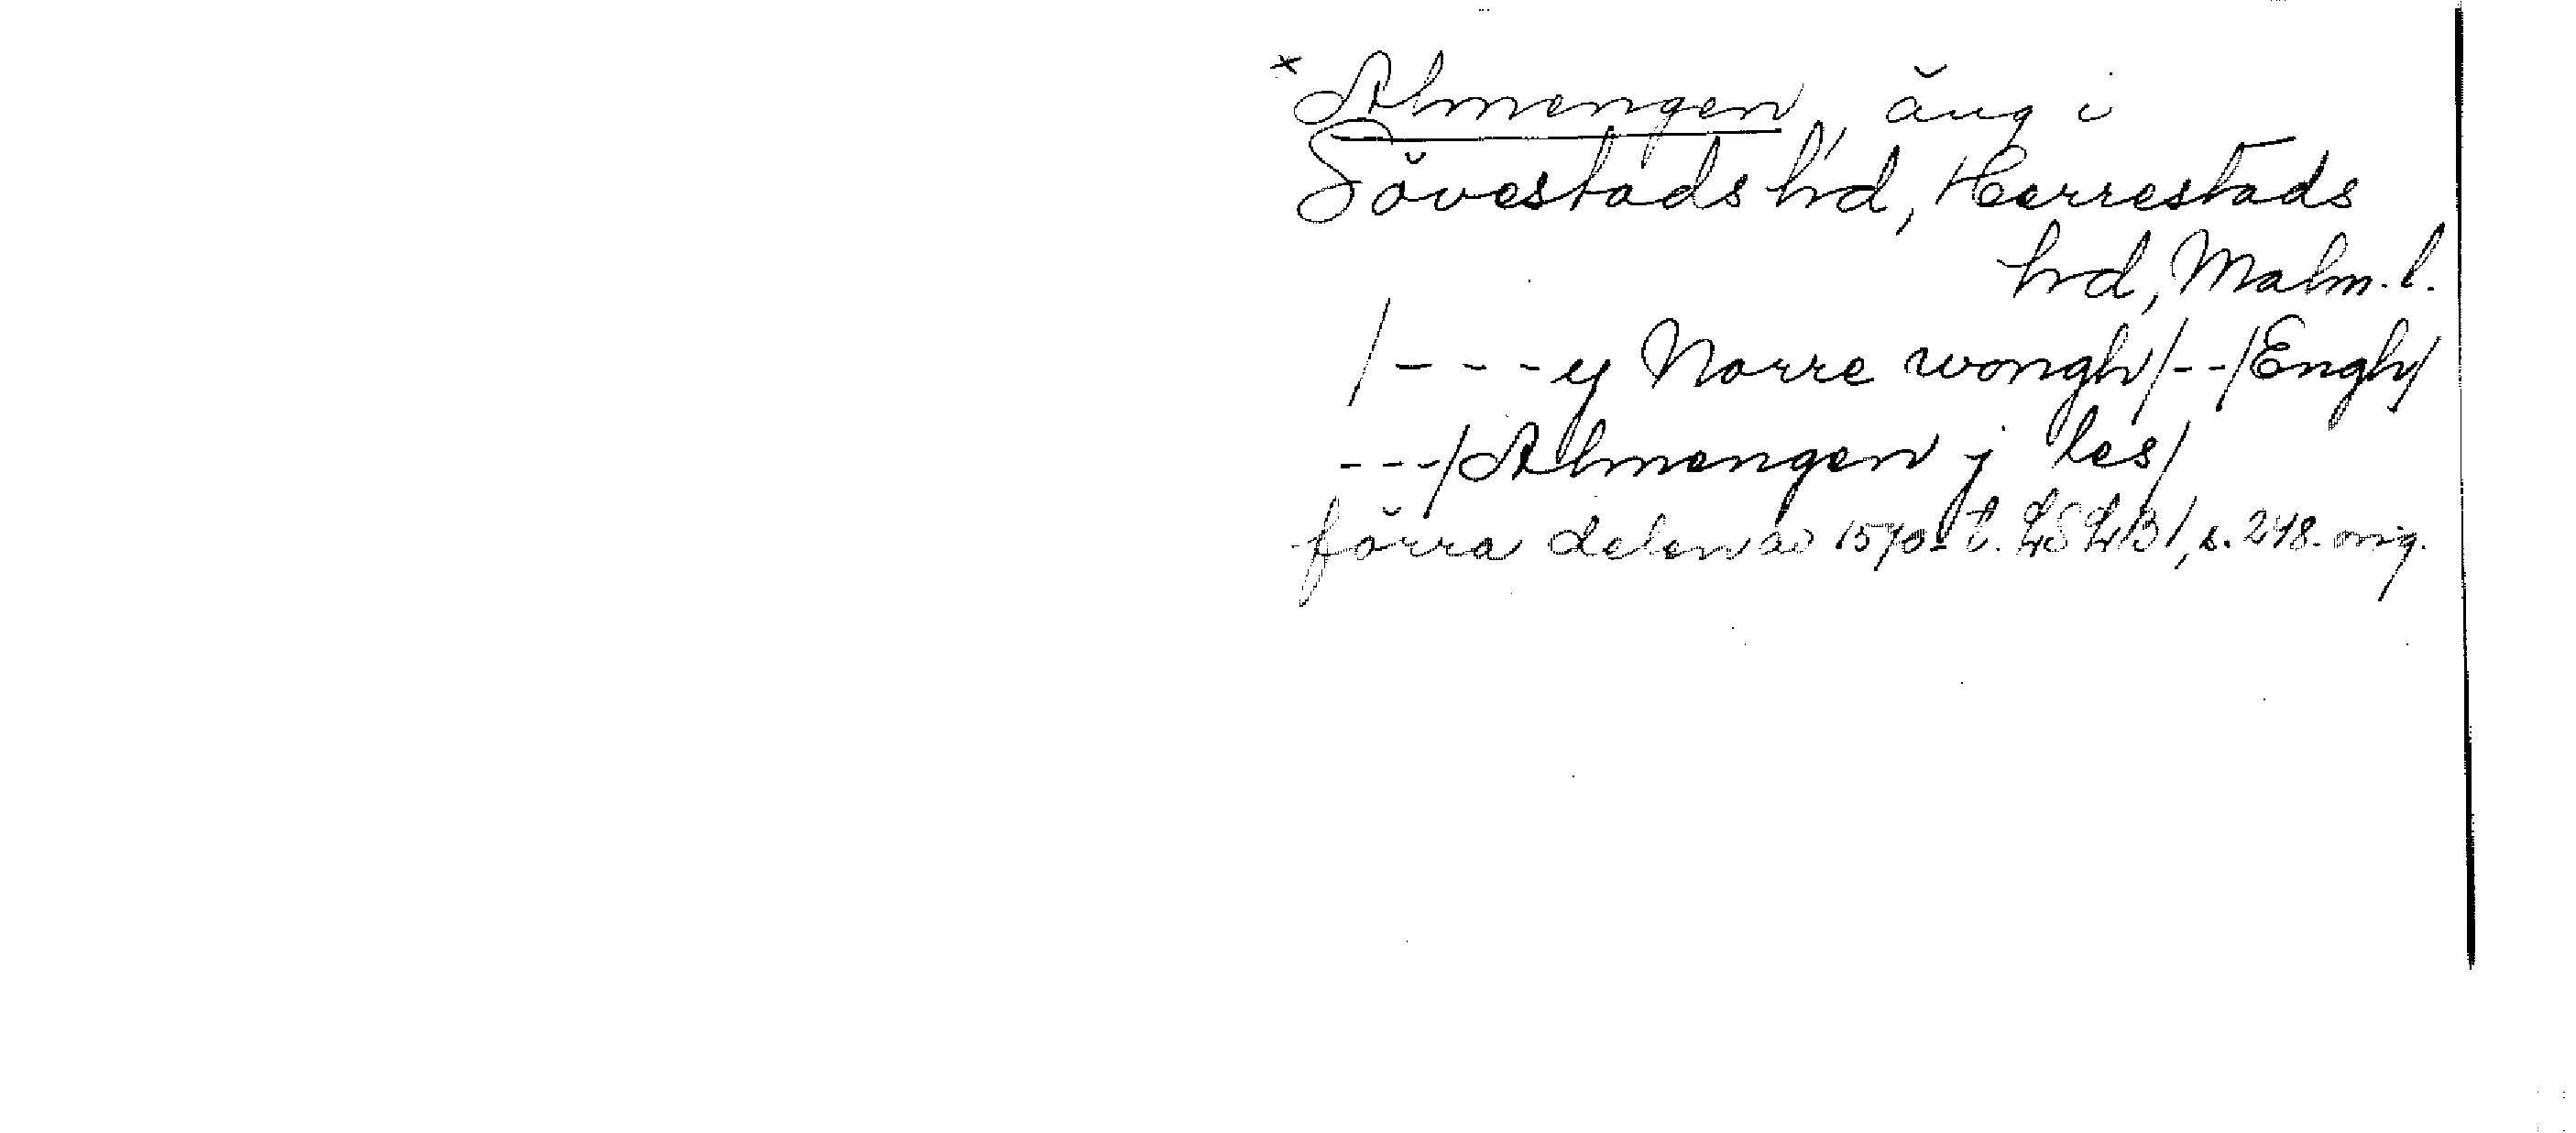 × Almengen, äng i
Sövestads hd, Herrestads
hd, Malm. l.
/ - - - y Norre wongh/--/Engh/
---/Almengen j les/
förra delen av 1570-t. LSLB 1, s. 248. orig.